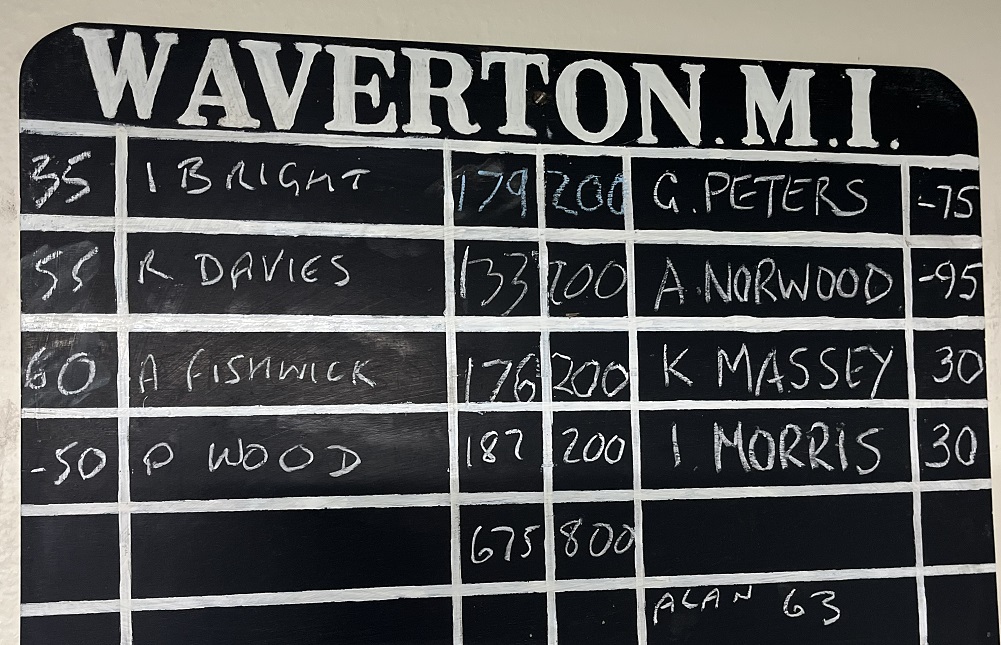 WAVERTON. M.I.
35 I BRIGHT 179 200 G. PETERS -75
55 R DAVIES 133 200 A. NORWOOD -95
60 A FISHWICK 176 200 K MASSEY 30
-50 P WOOD 187 200 I MORRIS 30
675 800
ALAN 63